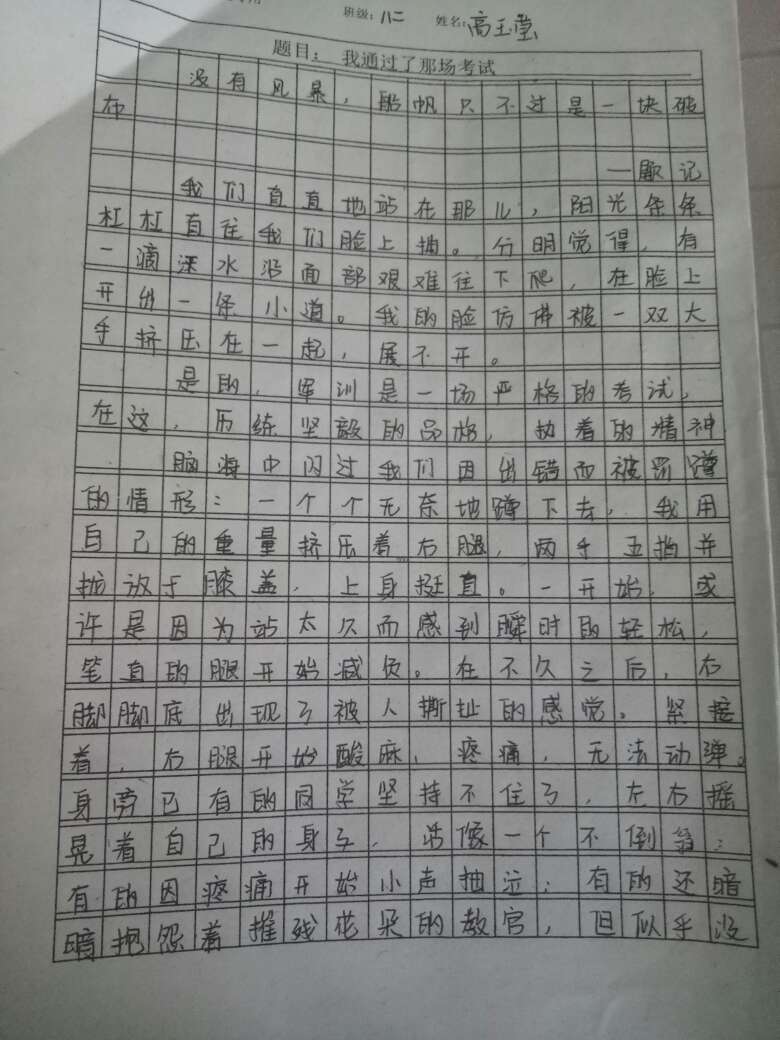 班级：八二 姓名：高玉莹
题目： 我通过了那场考试
没有风暴，船帆只不过是一块破
布
——题记
我们直直地站在那儿，阳光条条
杠杠直往我们脸上抽。分明觉得，有
一滴汗水沿面部艰难往下爬，在脸上
开出一条小道。我的脸仿佛被一双大
手挤压在一起，展不开。
是的，军训是一场严格的考试，
在这，历练坚毅的品格，执着的精神
脑海中闪过我们因出错而被罚蹲
的情形：一个个无奈地蹲下去，我用
自己的重量挤压着右腿，两手五指并
拢放于膝盖，上身挺直。一开始，或
许是因为站太久而感到瞬时的轻松，
笔直的腿开始减负。在不久之后，右
脚脚底出现了被人撕扯的感觉。紧接
着，右腿开始酸麻，疼痛，无法动弹。
身旁已有的同学坚持不住了，左右摇
晃着自己的身子，活像一个不倒翁；
有的因疼痛开始小声抽泣；有的还暗
暗抱怨着摧残花朵的教官，但似乎没